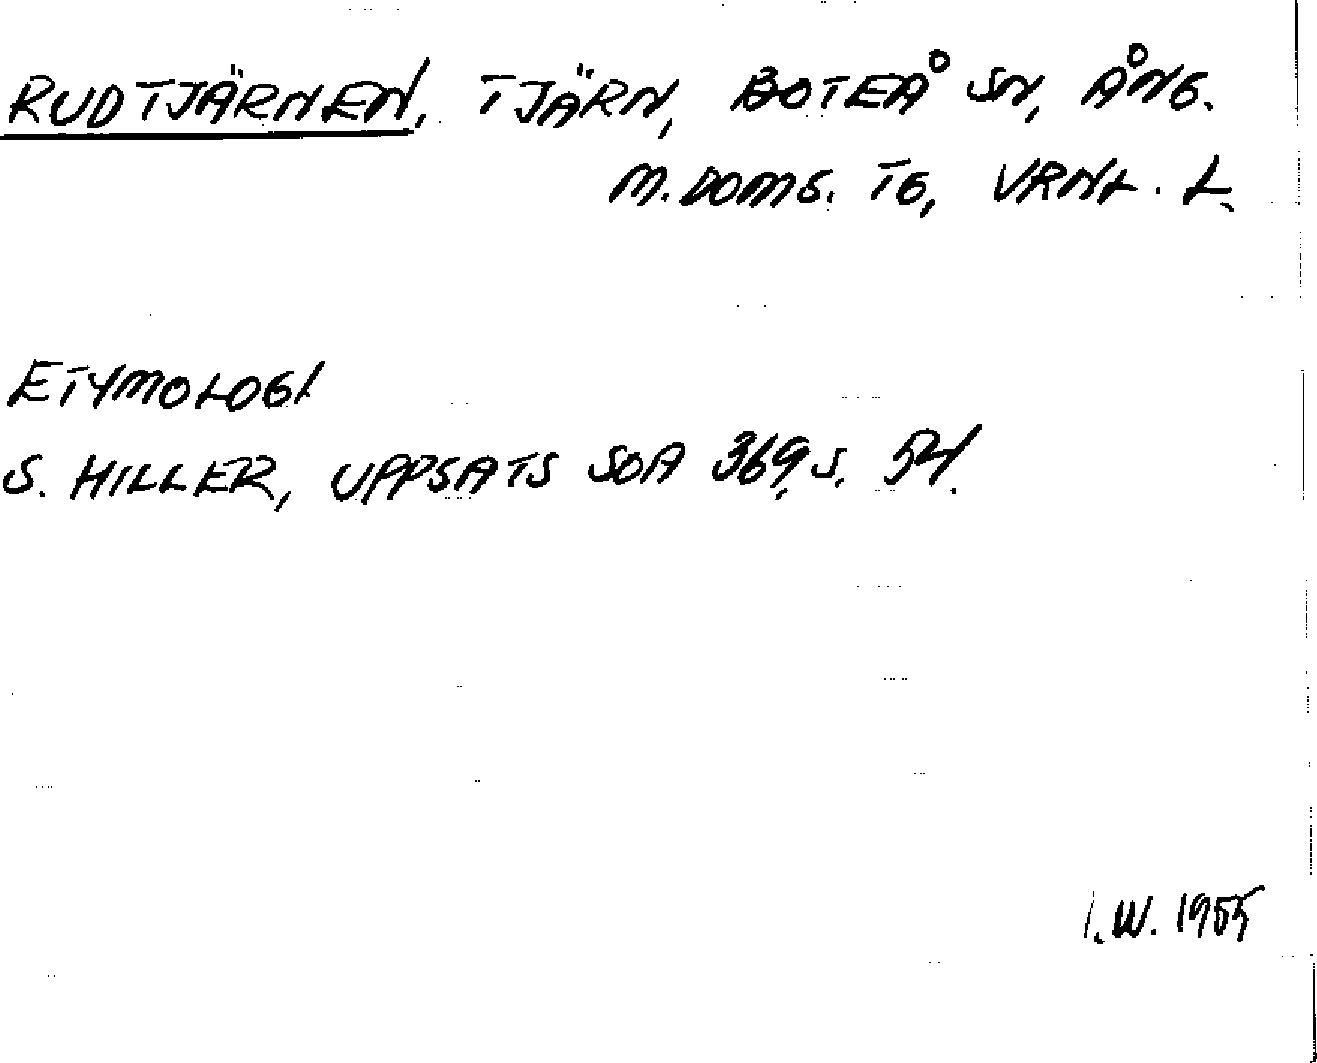 RUDTJÄRNEN, TJÄRN, BOTEÅ SN, ÅNG.
M. DOMS. TG, VRNL. L.
ETYMOLOGI
S. HILLER, UPPSATS SOA 369, S. 54.
I.W. 1955